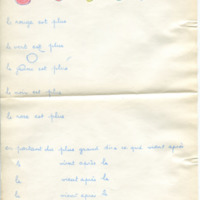 le rouge est plus
le vert est plus
le jaune est plus
le noir est plus
le rose est plus
en partant du plus grand dire ce qui vient après
le vient après le
le vient après le
le vient après le